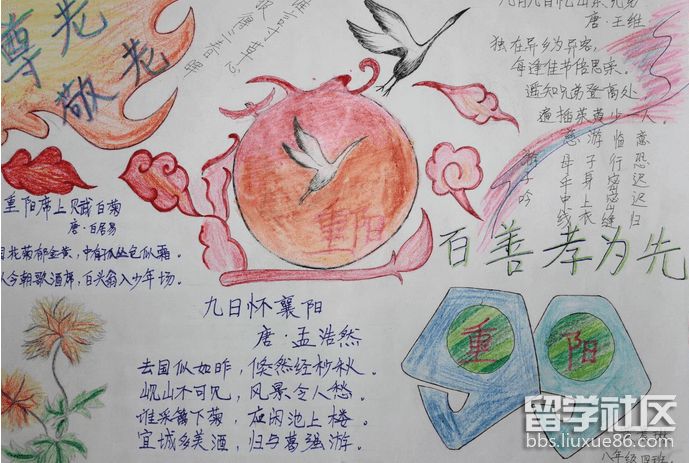 尊老
敬老
谁言寸草心
报得三春晖
九月九日忆山东兄弟
唐·王维
独在异乡为异客,
每逢佳节倍思亲。
遥知兄弟登高处
遍插茱萸少一人。
游子吟
慈母手中线
游子身上衣
临行密密缝
意恐迟迟归
重阳席上赋白菊
唐·白居易
园花菊郁金黄,中有孤丛色似霜。
从今朝歌酒席,白头翁入少年场。
重阳
百善孝为先
九日怀襄阳
唐·孟浩然
去国似如昨,倏然经杪秋。
岘山不可见,风景令人愁。
谁采篱下菊,应闲池上楼。
宜城多美酒,归与葛强游。
重
阳
留学社区
bbs.liuxue86.com
八年级四班